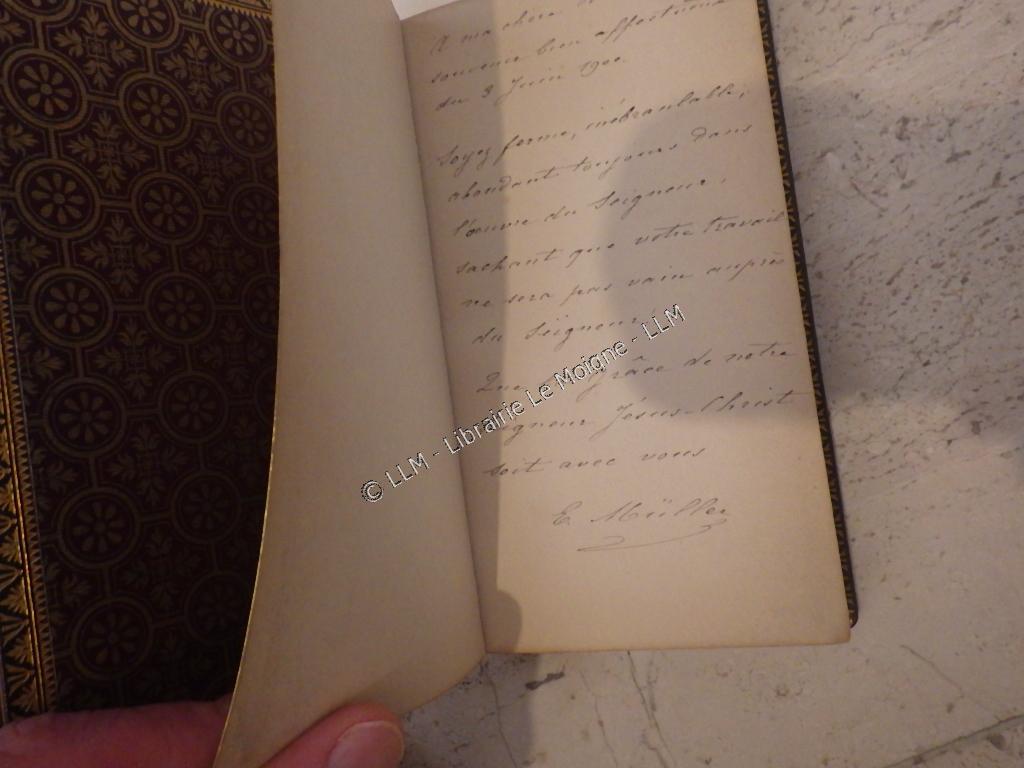 A ma chère
souvenir bien affectueux
du 3 Juin 1900.
Soyez ferme, inébranlable,
abondant toujours dans
l'œuvre du Seigneur,
sachant que votre travail
ne sera pas vain auprès
du Seigneur
Que grâce de notre
gneur Jésus-Christ
soit avec vous
E. Müller
© LLM - Librairie Le Moigne - LLM